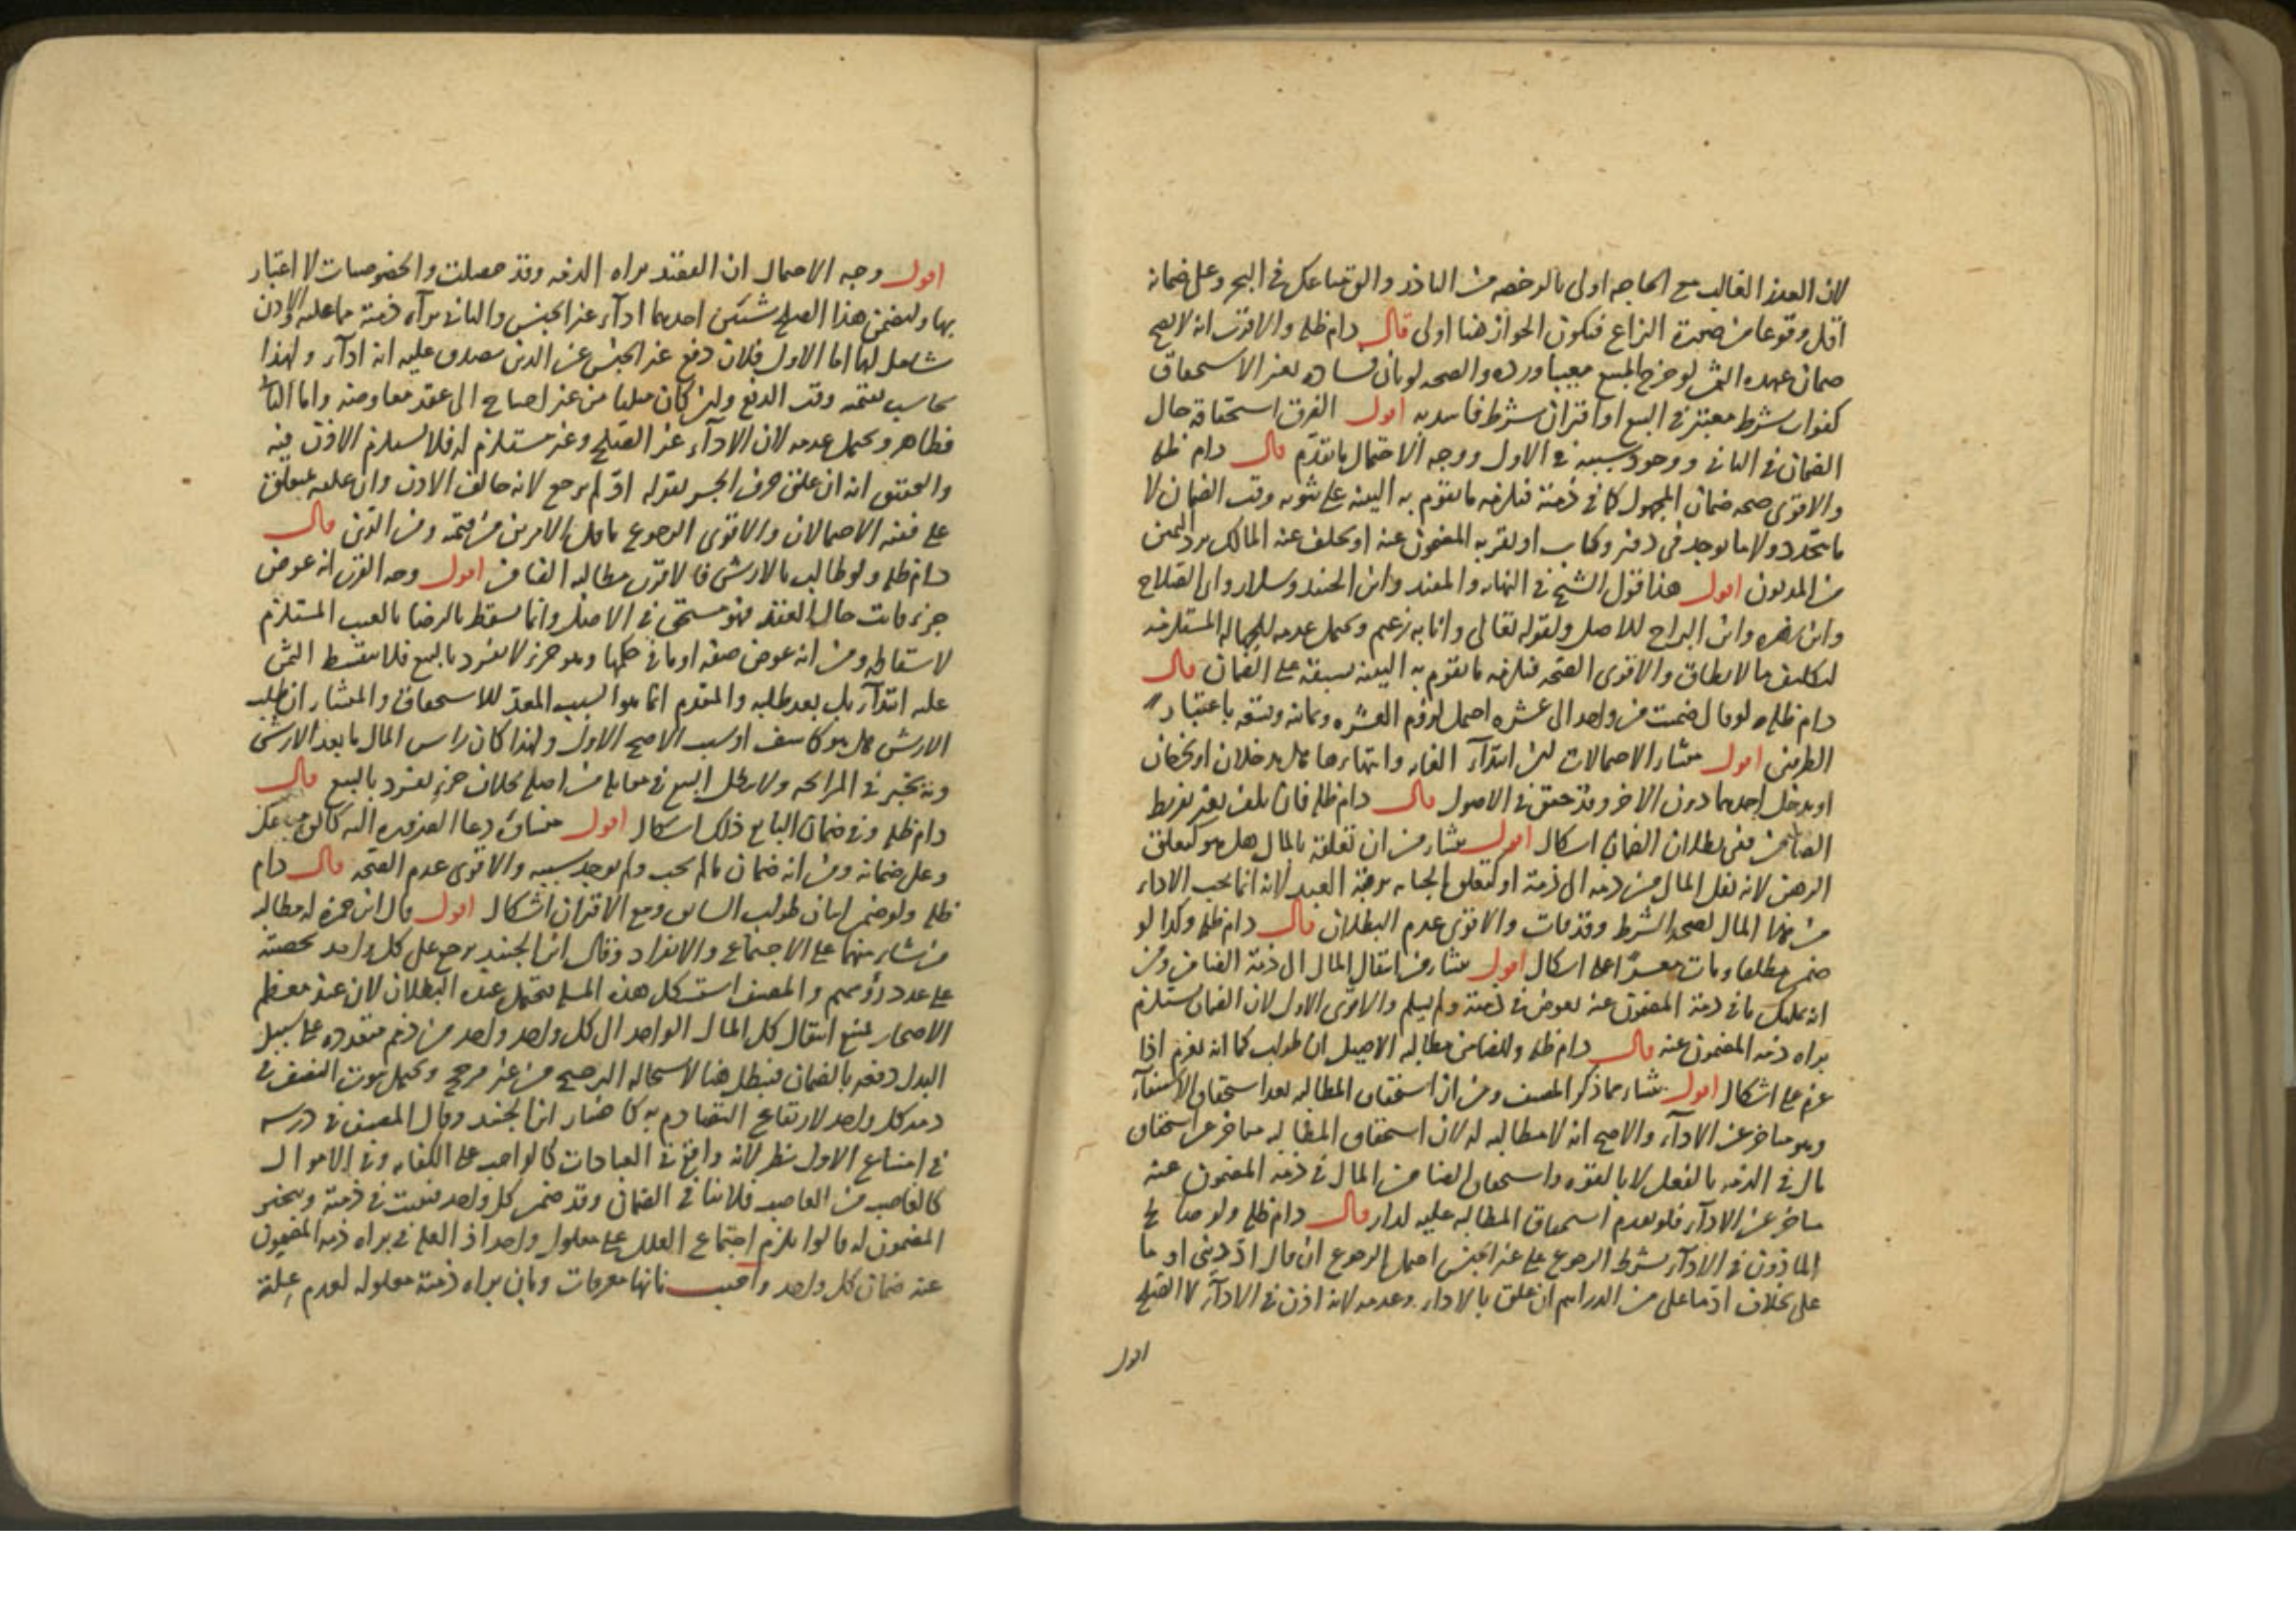 لان العذر الغالب مع الحاجه اولى بالرخصه من النادر والق متاعك في البحر وعلي ضمانه
اقل وقوعا من صحة النزاع فيكون الجواز هنا اولى قال دام ظله والاقرب انه لا يصح
ضمان عهده الثمن لو خرج المبيع معيبا ورده والصحه لو بان فساده بغير الاستحقاق
كفوات شرط معتبر في البيع او اقتران شرط فاسد به اقول الفرق استحقاقه حال
الضمان في الثاني ووجود سببه في الاول ووجه الاحتمال ما تقدم قال دام ظله
والاقوى صحه ضمان المجهول كما في ذمته فيلزمه ما تقوم به البينه على ثبوته وقت الضمان لا
ما يتجدد ولا ما يوجد في دفتر وكتاب او يقر به المضمون عنه او يحلف عنه المالك برد اليمين
من المديون اقول هذا قول الشيخ في النهايه والمفيد وابن الجنيد وسلار وابي الصلاح
وابن زهره وابن البراج للاصل ولقوله تعالى وانا به زعيم ويحتمل عدمه للجهاله المستلزمه
لتكليف ما لا يطاق والاقوى الصحه فيلزمه ما تقوم به البينه بسبقه على الضمان قال
دام ظله لو قال ضمنت من واحد الى عشره احتمل لزوم العشره وثمانيه وتسعه باعتبار
الطرفين اقول منشا الاحتمالات ان ابتداء الغايه وانتهاءها هل يدخلان او يخرجان
او يدخل احدهما دون الاخر وقد حقق في الاصول قال دام ظله فان تلف بغير تفريط
الضامن ففي بطلان الضمان اشكال اقول منشا من ان تعلقه بالمال هل هو كتعلق
الرهن لانه نقل المال من ذمه الى ذمة او كتعلق الجنايه برقبة العبد لانه انما يجب الاداء
من هذا المال لصحه الشرط وقد فات والاقوى عدم البطلان قال دام ظله وكذا لو
ضمن مطلقا ومات معسرا على اشكال اقول منشا من انتقال المال الى ذمة الضامن ومن
انه تمليك ما في ذمة المضمون عنه بعوض في ذمته ولم يسلم والاقوى الاول لان الضمان يستلزم
براه ذمه المضمون عنه قال دام ظله وللضامن مطالبه الاصيل ان طولب كما انه يغرم اذا
غرم على اشكال اقول منشا مما ذكر المصنف ومن ان استحقاق المطالبه بعد استحقاق الاستيفاء
وهو متاخر عن الاداء والاصح انه لا مطالبه له لان استحقاق المطالبه متاخر عن استحقاق
مال في الذمه بالفعل لا بالقوه واستحقاق الضامن المال في ذمه المضمون عنه
متاخر عن الاداء فلو تقدم استحقاق المطالبه عليه لدار قال دام ظله ولو صالح
الماذون في الاداء بشرط الرجوع على غير الجنس احتمل الرجوع ان قال اد ديني او ما
علي بخلاف اد ما علي من الدراهم ان علق بالاداء وعدمه لانه اذن في الاداء لا الصلح
اقول
اقول وجه الاحتمال ان القصد براه الذمه وقد حصلت والخصوصيات لا اعتبار
بها ولتضمن هذا الصلح شيئين احدهما اداء غير الجنس والثاني براءه ذمته مما عليه والاذن
شامل لهما اما الاول فلان دفع غير الجنس عن الدين يصدق عليه انه اداء ولهذا
يحاسب بقيمته وقت الدفع وان كان مليا من غير احتياج الى عقد معاوضه واما الثاني
فظاهر ويحتمل عدمه لان الاداء غير الصلح وغير مستلزم له فلا يستلزم الاذن فيه
والتحقيق انه ان علق حرف الجر بقوله اد لم يرجع لانه خالف الاذن وان علقه بمتعلق
علي ففيه الاحتمالان والاقوى الرجوع باقل الامرين من قيمته ومن الدين قال
دام ظله ولو طالب بالارش فالاقرب مطالبه الضامن اقول وجه القرب انه عوض
جزء فائت حال العقد فهو مستحق في الاصل وانما يسقط بالرضا بالعيب المستلزم
لاسقاطه ومن انه عوض صفه او ما في حكمها وهو جزء لا يفرد بالبيع فلا يقسط الثمن
عليه ابتداء بل بعد طلبه والمتقدم انما هو السبب المعد للاستحقاق والمنشا ان طلب
الارش هل هو كاشف او سبب الاصح الاول ولهذا كان راس المال ما بعد الارش
وبه يخبر في المرابحه ولا يبطل البيع في مقابله من اصله بخلاف جزء يفرد بالبيع قال
دام ظله وفي ضمان البايع ذلك اشكال اقول منشاه دعا الضروره اليه كالق متاعك
وعلي ضمانه ومن انه ضمان ما لم يجب ولم يوجد سببه والاقوى عدم الصحه قال دام
ظله ولو ضمن اثنان طولب السابق ومع الاقتران اشكال اقول قال ابن حمزه له مطالبه
من شاء منهما على الاجتماع والانفراد وقال ابن الجنيد يرجع على كل واحد بحصته
على عدد رؤسهم والمصنف استشكل هذه المسله فيحتمل عنده البطلان لان عند معظم
الاصحاب يمتنع انتقال كل المال الواحد الى كل واحد واحد من ذمم متعدده على سبيل
البدل دفعه بالضمان فيبطل هنا لاستحاله الترجيح من غير مرجح ويحتمل ثبوت النصف في
ذمه كل واحد لارتفاع التصادم به كما اختار ابن الجنيد وقال المصنف في درسه
في امتناع الاول نظر لانه واقع في العبادات كالواجب على الكفايه وفي الاموال
كالغاصب من الغاصب فلا ينافي الضمان وقد ضمن كل واحد فيثبت في ذمته ويتخير
المضمون له قالوا يلزم اجتماع العلل على معلول واحد اذ العله في براه ذمه المضمون
عنه ضمان كل واحد واجيب بانها معرفات وبان براه ذمته معلوله لعدم علة